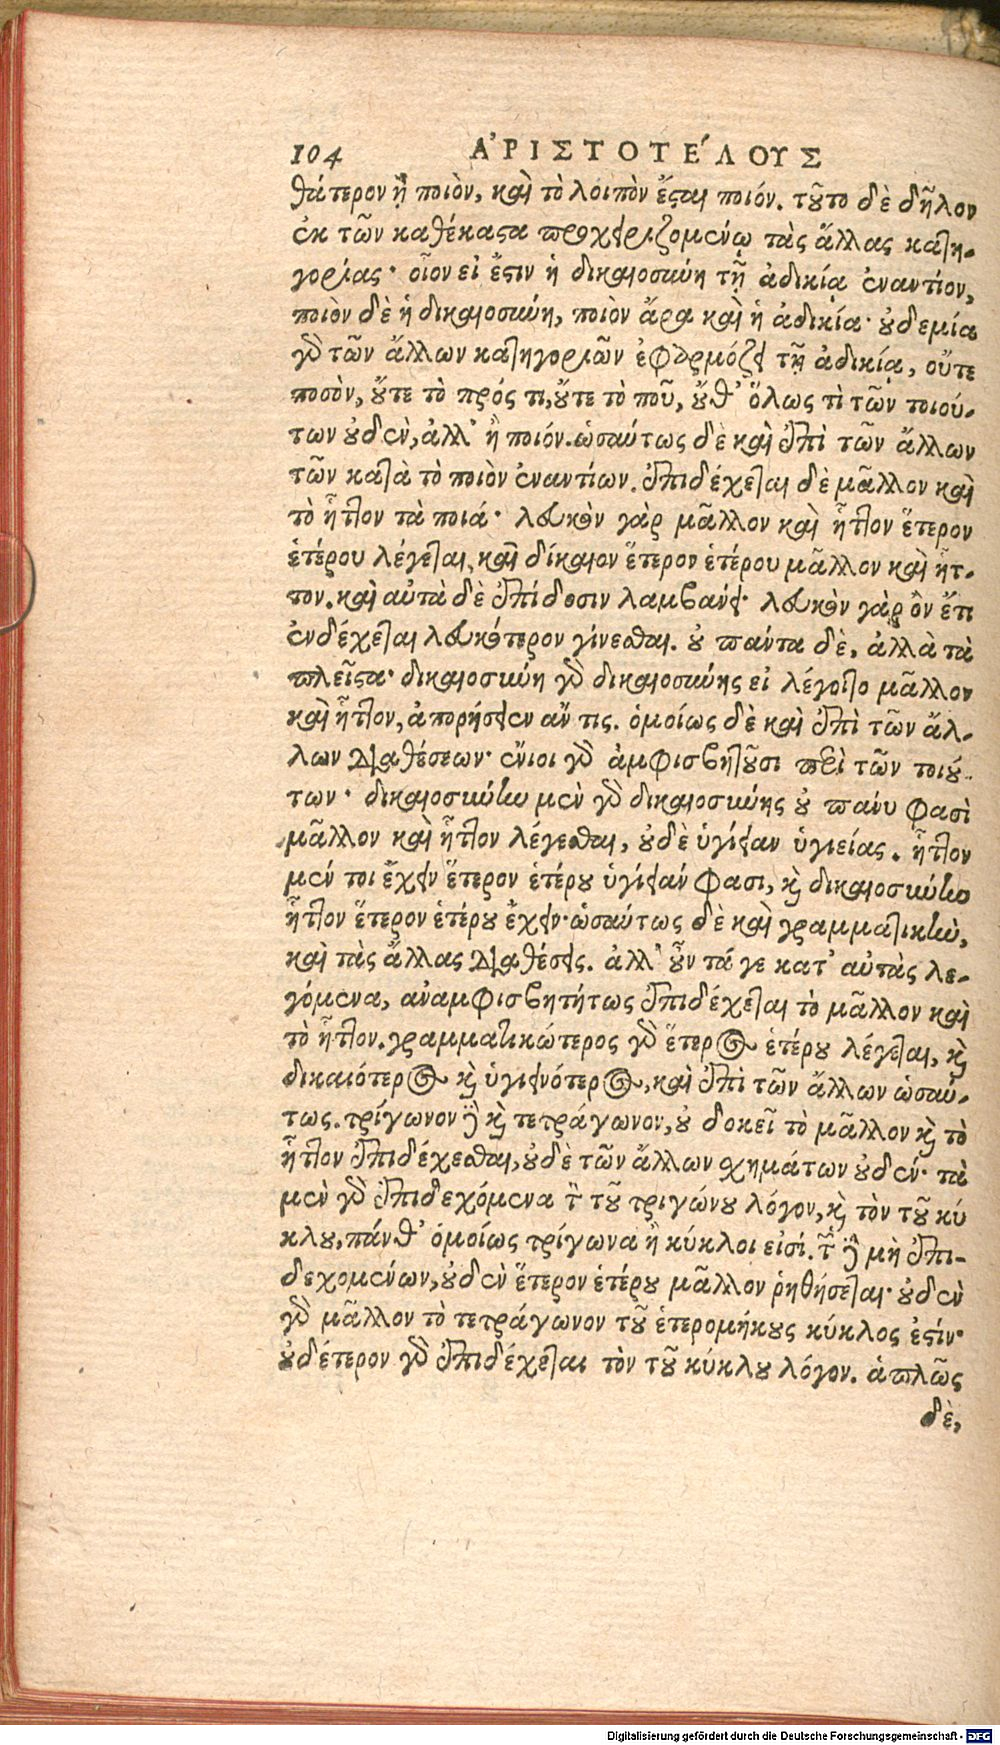 104 ἈΡΙΣΤΟΤΈΛΟΥΣ
θάτερον ᾖ ποιὸν, καὶ τὸ λοιπὸν ἔσται ποιόν. τοῦτο δὲ δῆλον
ἐκ τῶν καθέκαστα προχειριζομένῳ τὰς ἄλλας κατη-
γορίας· οἷον εἰ ἔστιν ἡ δικαιοσύνη τῇ ἀδικίᾳ ἐναντίον,
ποιὸν δὲ ἡ δικαιοσύνη, ποιὸν ἄρα καὶ ἡ ἀδικία· οὐδεμία
γὰρ τῶν ἄλλων κατηγοριῶν ἐφαρμόζει τῇ ἀδικίᾳ, οὔτε
ποσὸν, οὔτε τὸ πρός τι, οὔτε τὸ ποῦ, οὔθ' ὅλως τὶ τῶν τοιού-
των οὐδὲν, ἀλλ' ἢ ποιόν. ὡσαύτως δὲ καὶ ἐπὶ τῶν ἄλλων
τῶν κατὰ τὸ ποιὸν ἐναντίων. ἐπιδέχεται δὲ μᾶλλον καὶ
τὸ ἧττον τὰ ποιά· λευκὸν γὰρ μᾶλλον καὶ ἧττον ἕτερον
ἑτέρου λέγεται, καὶ δίκαιον ἕτερον ἑτέρου μᾶλλον καὶ ἧτ-
τον. καὶ αὐτὰ δὲ ἐπίδοσιν λαμβάνει· λευκὸν γὰρ ὂν ἔτι
ἐνδέχεται λευκότερον γίνεσθαι. οὐ πάντα δὲ, ἀλλὰ τὰ
πλεῖστα· δικαιοσύνη γὰρ δικαιοσύνης εἰ λέγοιτο μᾶλλον
καὶ ἧττον, ἀπορήσειεν ἄν τις. ὁμοίως δὲ καὶ ἐπὶ τῶν ἄλ-
λων διαθέσεων· ἔνιοι γὰρ ἀμφισβητοῦσι περὶ τῶν τοιού-
των· δικαιοσύνην μὲν γὰρ δικαιοσύνης οὐ πάνυ φασὶ
μᾶλλον καὶ ἧττον λέγεσθαι, οὐδὲ ὑγίειαν ὑγιείας. ἧττον
μέν τοι ἔχειν ἕτερον ἑτέρου ὑγίειάν φασι, καὶ δικαιοσύνην
ἧττον ἕτερον ἑτέρου ἔχειν· ὡσαύτως δὲ καὶ γραμματικὴν,
καὶ τὰς ἄλλας διαθέσεις. ἀλλ' οὖν τά γε κατ' αὐτὰς λε-
γόμενα, ἀναμφισβητήτως ἐπιδέχεται τὸ μᾶλλον καὶ
τὸ ἧττον. γραμματικώτερος γὰρ ἕτερος ἑτέρου λέγεται, καὶ
δικαιότερος καὶ ὑγιεινότερος, καὶ ἐπὶ τῶν ἄλλων ὡσαύ-
τως. τρίγωνον δὲ καὶ τετράγωνον, οὐ δοκεῖ τὸ μᾶλλον καὶ τὸ
ἧττον ἐπιδέχεσθαι, οὐδὲ τῶν ἄλλων σχημάτων οὐδέν· τὰ
μὲν γὰρ ἐπιδεχόμενα τὸν τοῦ τριγώνου λόγον, καὶ τὸν τοῦ κύ
κλου, πάνθ' ὁμοίως τρίγωνα ἢ κύκλοι εἰσί. τῶν δὲ μὴ ἐπι-
δεχομένων, οὐδὲν ἕτερον ἑτέρου μᾶλλον ῥηθήσεται· οὐδὲν
γὰρ μᾶλλον τὸ τετράγωνον τοῦ ἑτερομήκους κύκλος ἐστίν·
οὐδέτερον γὰρ ἐπιδέχεται τὸν τοῦ κύκλου λόγον. ἁπλῶς
δὲ,
Digitalisierung gefördert durch die Deutsche Forschungsgemeinschaft - DFG